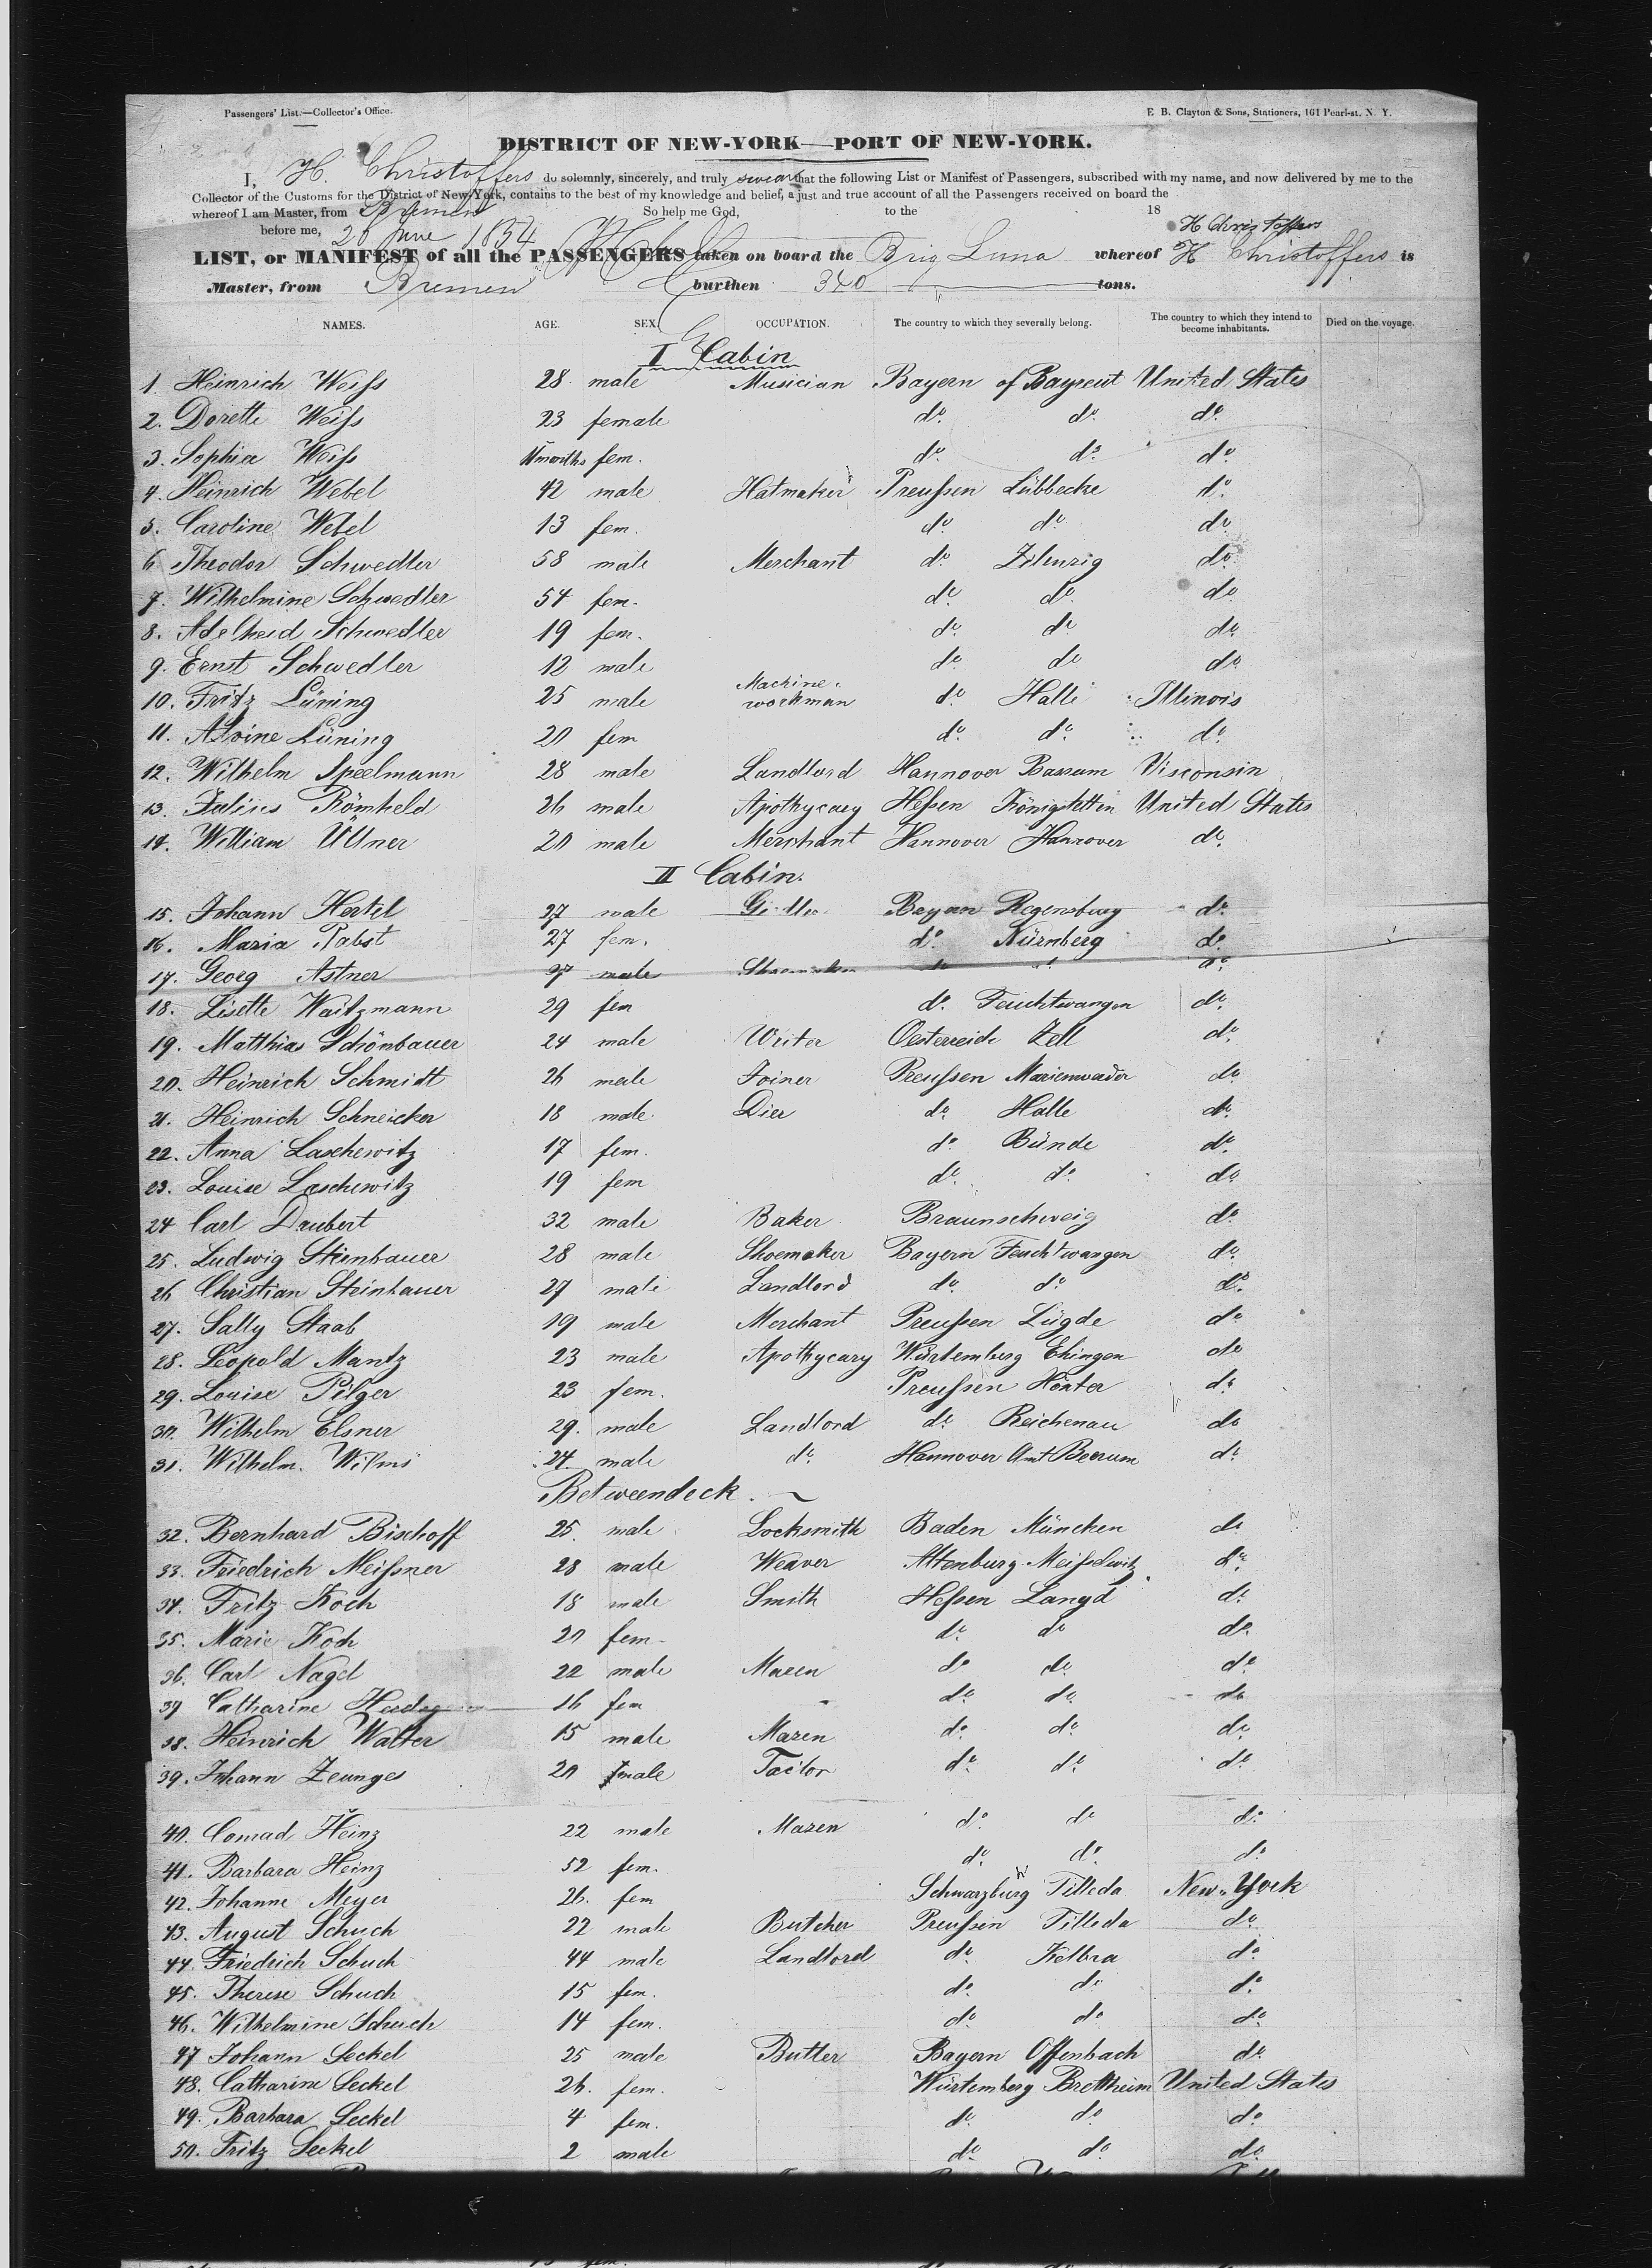 Passengers' List.—Collector's Office.
E. B. Clayton & Sons, Stationers, 161 Pearl-st. N. Y.
DISTRICT OF NEW-YORK—PORT OF NEW-YORK.
I, H. Christoffers do solemnly, sincerely, and truly swear that the following List or Manifest of Passengers, subscribed with my name, and now delivered by me to the
Collector of the Customs for the District of New-York, contains to the best of my knowledge and belief, a just and true account of all the Passengers received on board the
whereof I am Master, from Bremen So help me God, to the 18
before me, 28 June 1854 H Christoffers
LIST, or MANIFEST of all the PASSENGERS taken on board the Brig Luna whereof H Christoffers is
Master, from Bremen burthen 340 tons.
NAMES. AGE. SEX. OCCUPATION. The country to which they severally belong. The country to which they intend to become inhabitants. Died on the voyage.
I Cabin
1. Heinrich Weiſs 28 male Musician Bayern of Bayreut United States
2. Dorette Weiſs 23 female do. do. do.
3. Sophia Weiſs months fem. do. do. do.
4. Heinrich Webel 42 male Hatmaker Preuſsen Lübbecke do.
5. Caroline Webel 13 fem. do. do. do.
6. Theodor Schwedler 58 male Merchant do. Zilenzig do.
7. Wilhelmine Schwedler 54 fem. do. do. do.
8. Adelheid Schwedler 19 fem. do. do. do.
9. Ernst Schwedler 12 male do. do. do.
10. Fritz Lüning 25 male Machine workman do. Halle Illinois
11. Alvine Lüning 20 fem do. do. do.
12. Wilhelm Speelmann 28 male Landlord Hannover Bassum Visconsin
13. Julius Römheld 26 male Apothycary Heſsen Königstetten United States
14. William Üllner 20 male Merchant Hannover Hannover do.
II Cabin.
15. Johann Hertel 37 male Bayern Regensburg do.
16. Maria Pabst 27 fem. do. Nürnberg do.
17. Georg Astner 27 male Shoemaker do. do. do.
18. Lisette Waitzmann 29 fem do. Feuchtwangen do.
19. Matthias Schönbauer 24 male Writer Oesterreich Zell do.
20. Heinrich Schmidt 26 male Joiner Preuſsen Marienwerder do.
21. Heinrich Schneicker 18 male Dier do. Halle do.
22. Anna Laschewitz 17 fem. do. Bünde do.
23. Louise Laschewitz 19 fem do. do. do.
24 Carl Daubert 32 male Baker Braunschweig do.
25. Ludwig Steinbauer 28 male Shoemaker Bayern Feuchtwangen do.
26 Christian Steinbauer 27 male Landlord do. do. do.
27. Sally Staab 19 male Merchant Preuſsen Lügde do.
28. Leopold Mantz 23 male Apothycary Würtemberg Ehingen do.
29. Louise Pilger 23 fem. Preuſsen Höxter do.
30. Wilhelm Elsner 29. male Landlord do. Reichenau do.
31. Wilhelm. Wilms 24 male do. Hannover Amt Beerum do.
Betweendeck.
32. Bernhard Bischoff 25. male Locksmith Baden München do.
33. Friedrich Meiſsner 28 male Weaver Altenburg Meiſselwitz do.
34. Fritz Koch 18 male Smith Heſsen Langd do.
35. Marie Koch 20 fem do. do. do.
36. Carl Nagel 22 male Mazen do. do. do.
37 Catharine 16 fem do. do. do.
38. Heinrich Walter 15 male Mazen do. do. do.
39. Johann Zeunges 20 male Tailor do. do. do.
40. Conrad Heinz 22 male Mazen do. do. do.
41. Barbara Heinz 52 fem. do. do. do.
42. Johanne Meyer 26. fem Schwarzburg Tilleda New-York
43. August Schuch 22 male Butcher Preuſsen Tilleda do.
44. Friedrich Schuch 44 male Landlord do. Kelbra do.
45. Therese Schuch 15 fem. do. do. do.
46. Wilhelmine Schuch 14 fem. do. do. do.
47 Johann Seckel 25 male Butler Bayern Offenbach do.
48. Catharine Seckel 26. fem. Würtemberg Brettheim United States
49. Barbara Seckel 4 fem. do. do. do.
50. Fritz Seckel 2 male do. do. do.